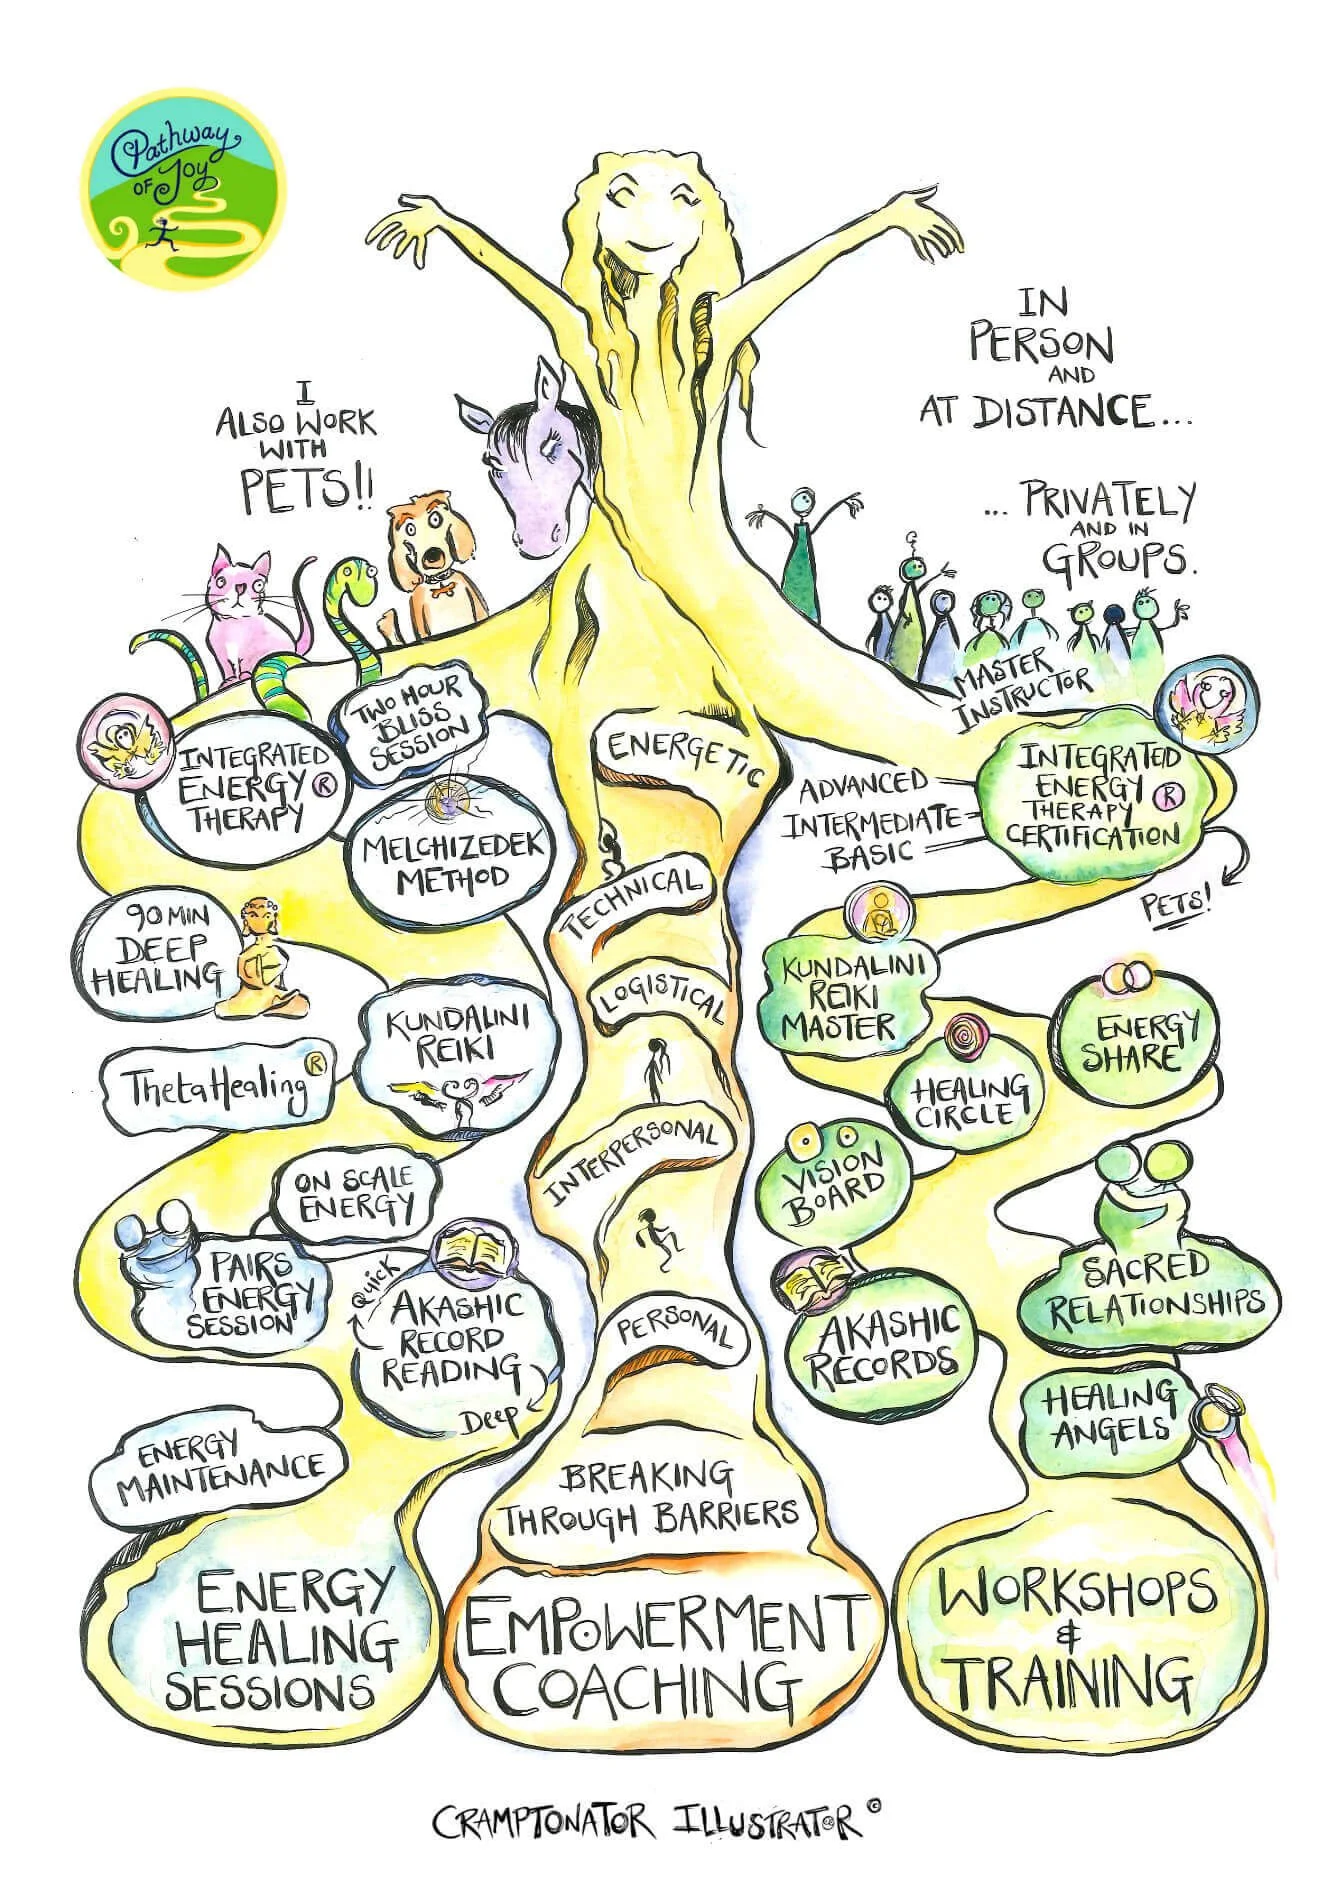 Pathway
OF Joy
IN
PERSON
AND
AT DISTANCE...
I
ALSO WORK
WITH
PETS!!
... PRIVATELY
AND IN
GROUPS.
MASTER
INSTRUCTOR
TWO HOUR
BLISS
SESSION
INTEGRATED
ENERGY ®
THERAPY
MELCHIZEDEK
METHOD
90 MIN
DEEP
HEALING
KUNDALINI
REIKI
ThetaHealing®
ON SCALE
ENERGY
PAIRS
ENERGY
SESSION
Quick
AKASHIC
RECORD
READING
Deep
ENERGY
MAINTENANCE
ENERGY
HEALING
SESSIONS
ENERGETIC
TECHNICAL
LOGISTICAL
INTERPERSONAL
PERSONAL
BREAKING
THROUGH BARRIERS
EMPOWERMENT
COACHING
INTEGRATED
ENERGY ®
THERAPY
CERTIFICATION
ADVANCED
INTERMEDIATE
BASIC
PETS!
KUNDALINI
REIKI
MASTER
ENERGY
SHARE
HEALING
CIRCLE
VISION
BOARD
SACRED
RELATIONSHIPS
AKASHIC
RECORDS
HEALING
ANGELS
WORKSHOPS
&
TRAINING
CRAMPTONATOR ILLUSTRATOR ©